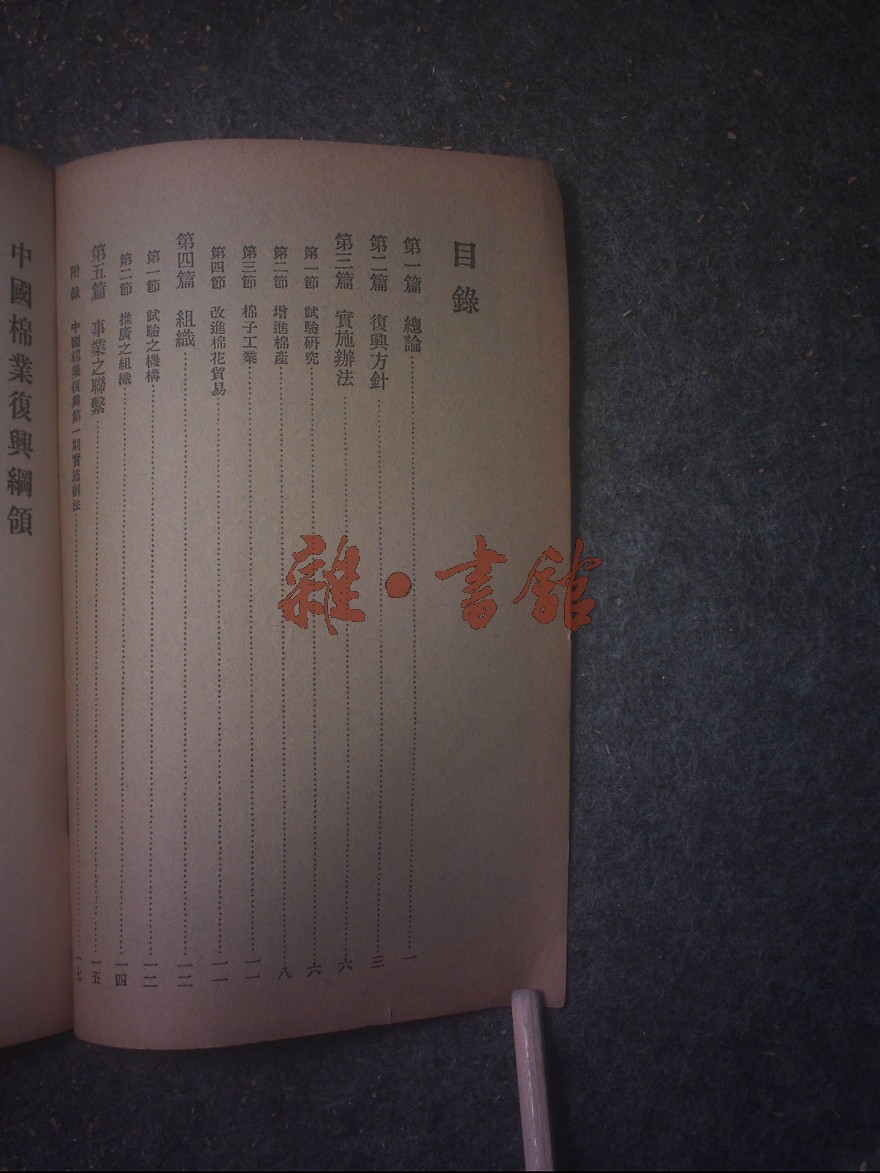 目錄
第一篇 總論……一
第二篇 復興方針……三
第三篇 實施辦法……六
第一節 試驗研究……六
第二節 增進棉產……八
第三節 棉子工業……一一
第四節 改進棉花貿易……一一
第四篇 組織……一二
第一節 試驗之機構……一二
第二節 推廣之組織……一四
第五篇 事業之聯繫……一五
附錄 中國棉業復興第一期實施辦法……一七
中國棉業復興綱領
雜·書館